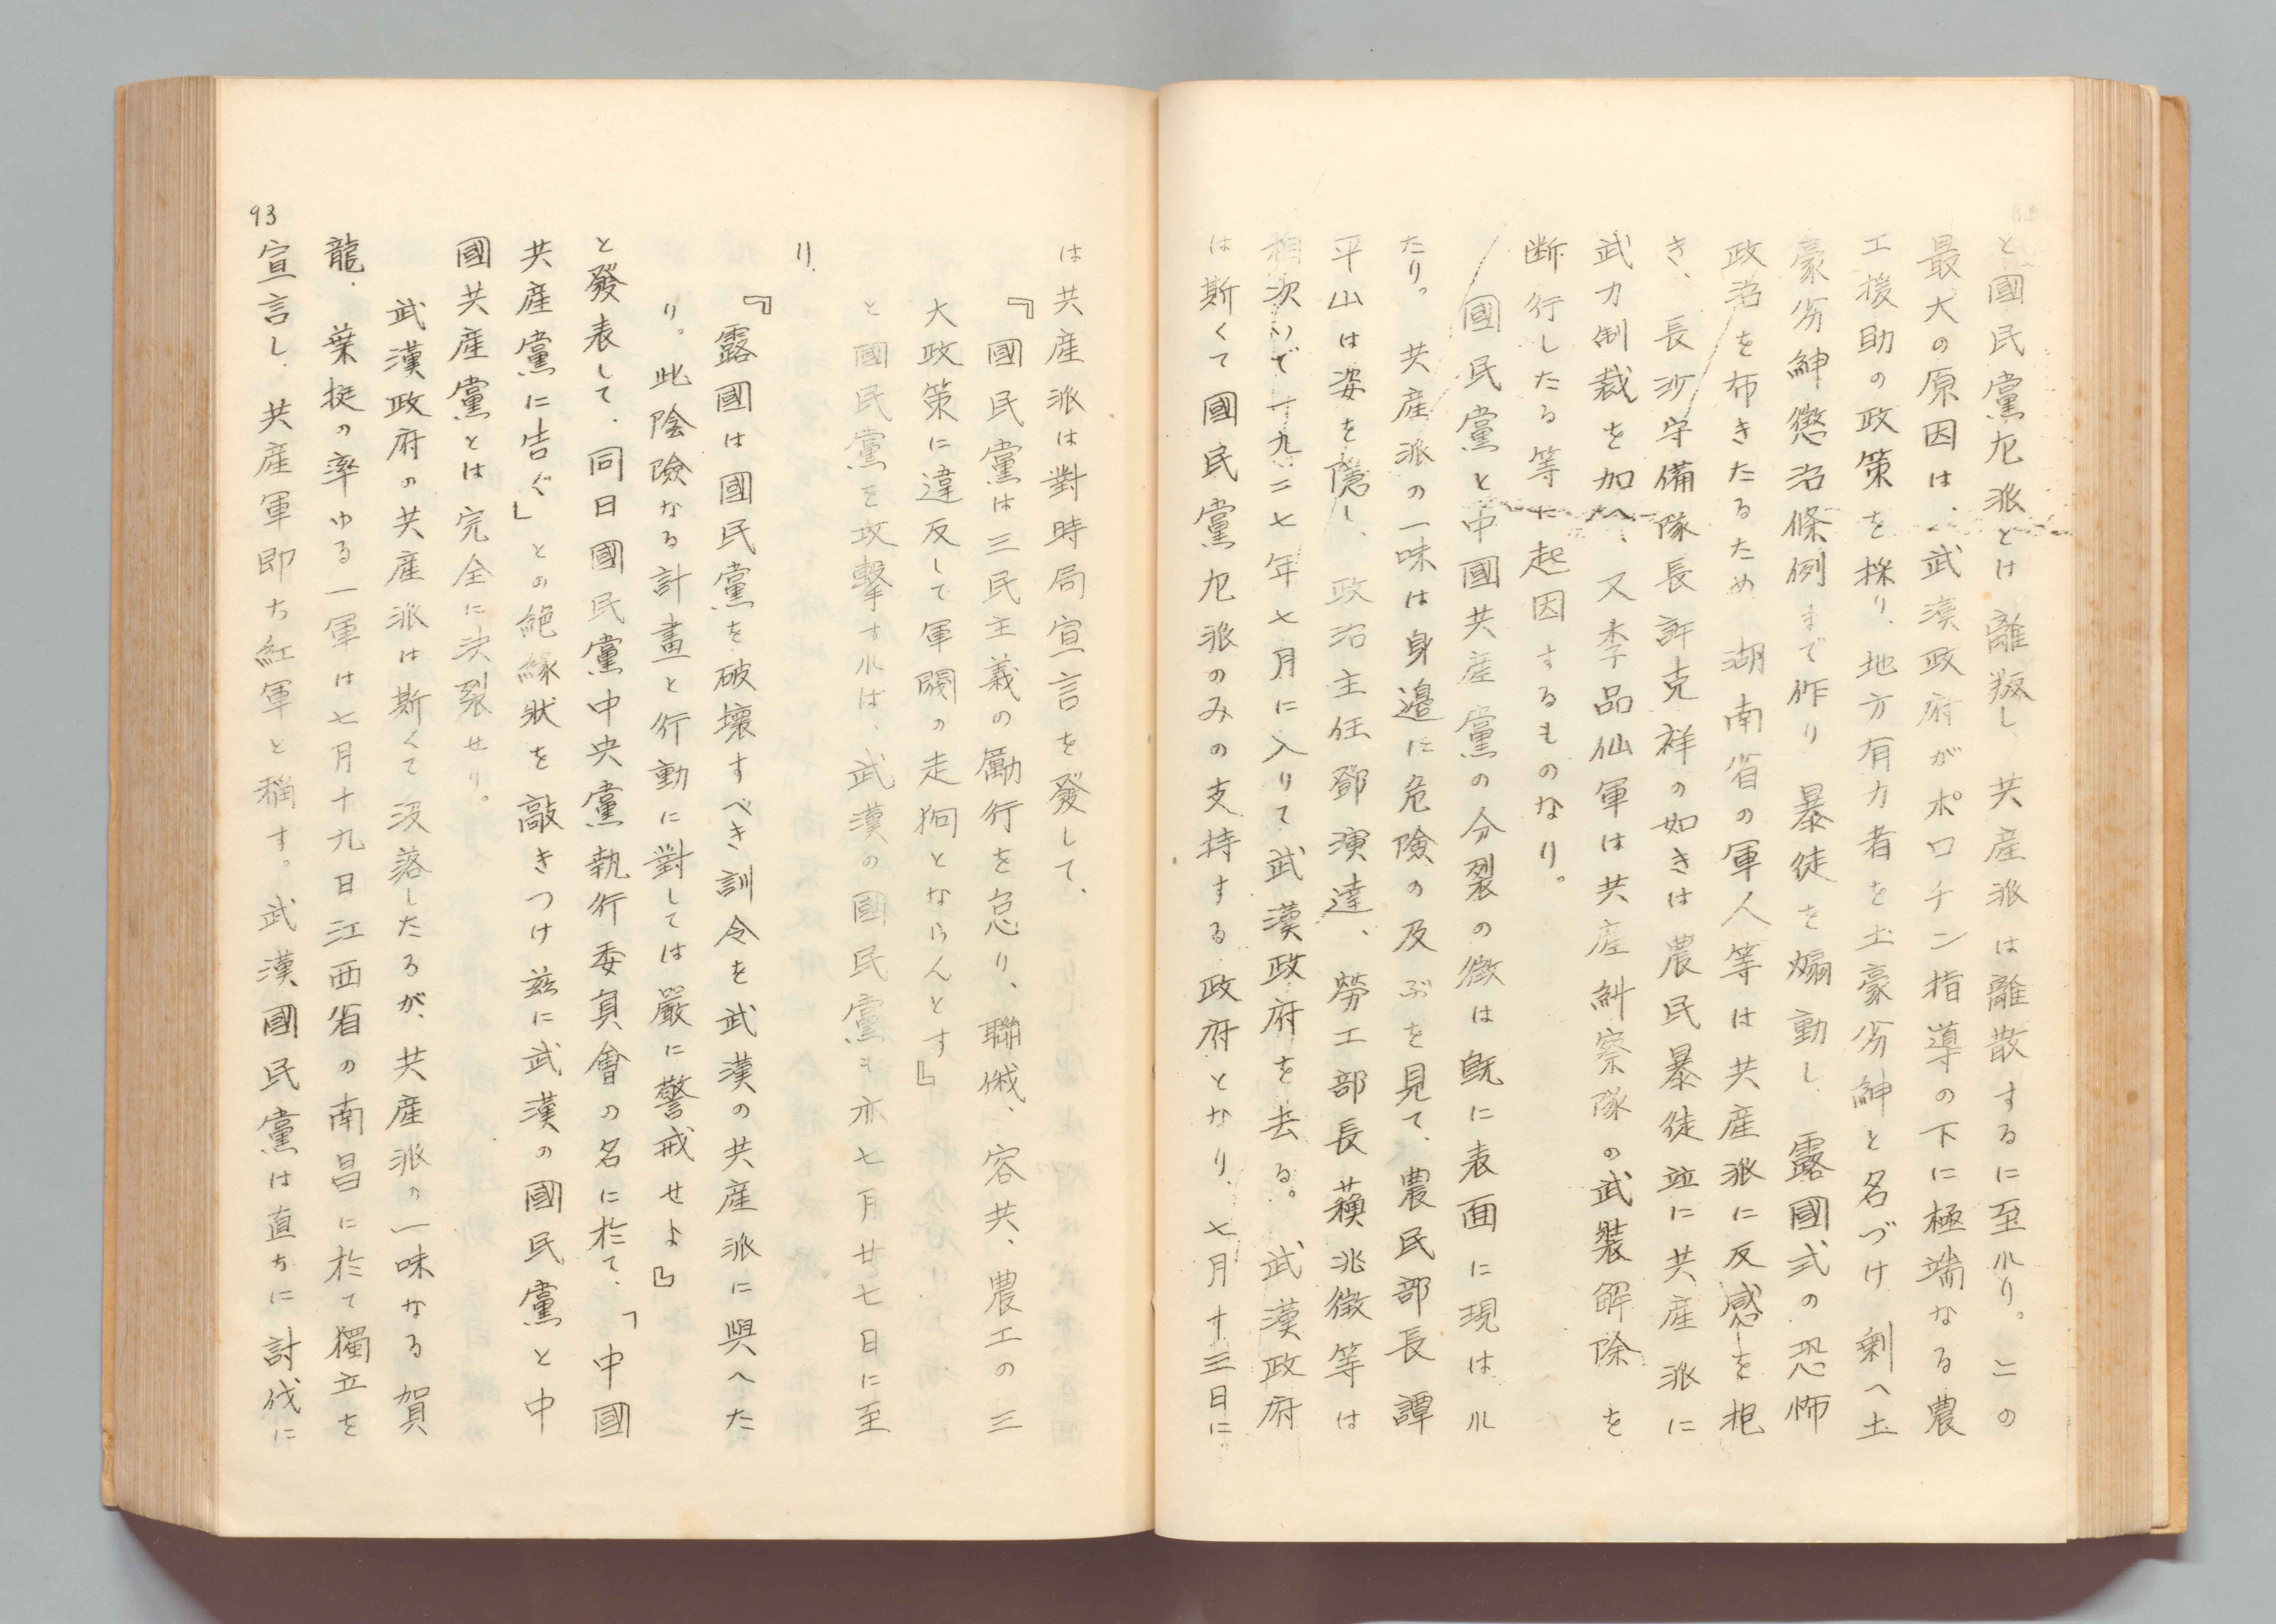 と國民黨左派とは離叛し、共産派は離散するに至れり。この
最大の原因は、武漢政府がボロヂン指導の下に極端なる農
工援助の政策を採り、地方有力者を土豪劣紳と名づけ剰へ土
豪劣紳懲治條例まで作り暴徒を煽動し露國式の恐怖
政治を布きたるため湖南省の軍人等は共産派に反感を抱
き、長沙守備隊長許克祥の如きは農民暴徒並に共産派に
武力制裁を加へ、又李品仙軍は共産糾察隊の武装解除を
断行したる等に起因するものなり。
國民黨と中國共産黨の分裂の徴は既に表面に現はれ
たり。共産派の一味は身邉に危險の及ぶを見て、農民部長譚
平山は姿を隱し、政治主任鄧演達、勞工部長蘓兆徴等は
相次いで一九二七年七月に入りて武漢政府を去る。武漢政府
は斯くて國民黨左派のみの支持する政府となり、七月十三日に
は共産派は對時局宣言を發して、
『國民黨は三民主義の勵行を怠り、聯俄、容共、農工の三
大政策に違反して軍閥の走狗とならんとす』
と國民黨を攻撃すれば、武漢の國民黨も亦七月廿七日に至
り、
『露國は國民黨を破壊すべき訓令を武漢の共産派に與へた
り。此陰險なる計畫と行動に對しては嚴に警戒せよ』
と發表して、同日國民黨中央黨執行委員會の名に於て、「中國
共産黨に告ぐ」との絶緣狀を敲きつけ茲に武漢の國民黨と中
國共産黨とは完全に決裂せり。
武漢政府の共産派は斯くて没落したるが、共産派の一味なる賀
龍、葉挺の率ゆる一軍は七月十九日江西省の南昌に於て獨立を
宣言し、共産軍即ち紅軍と稱す。武漢國民黨は直ちに討伐に
93